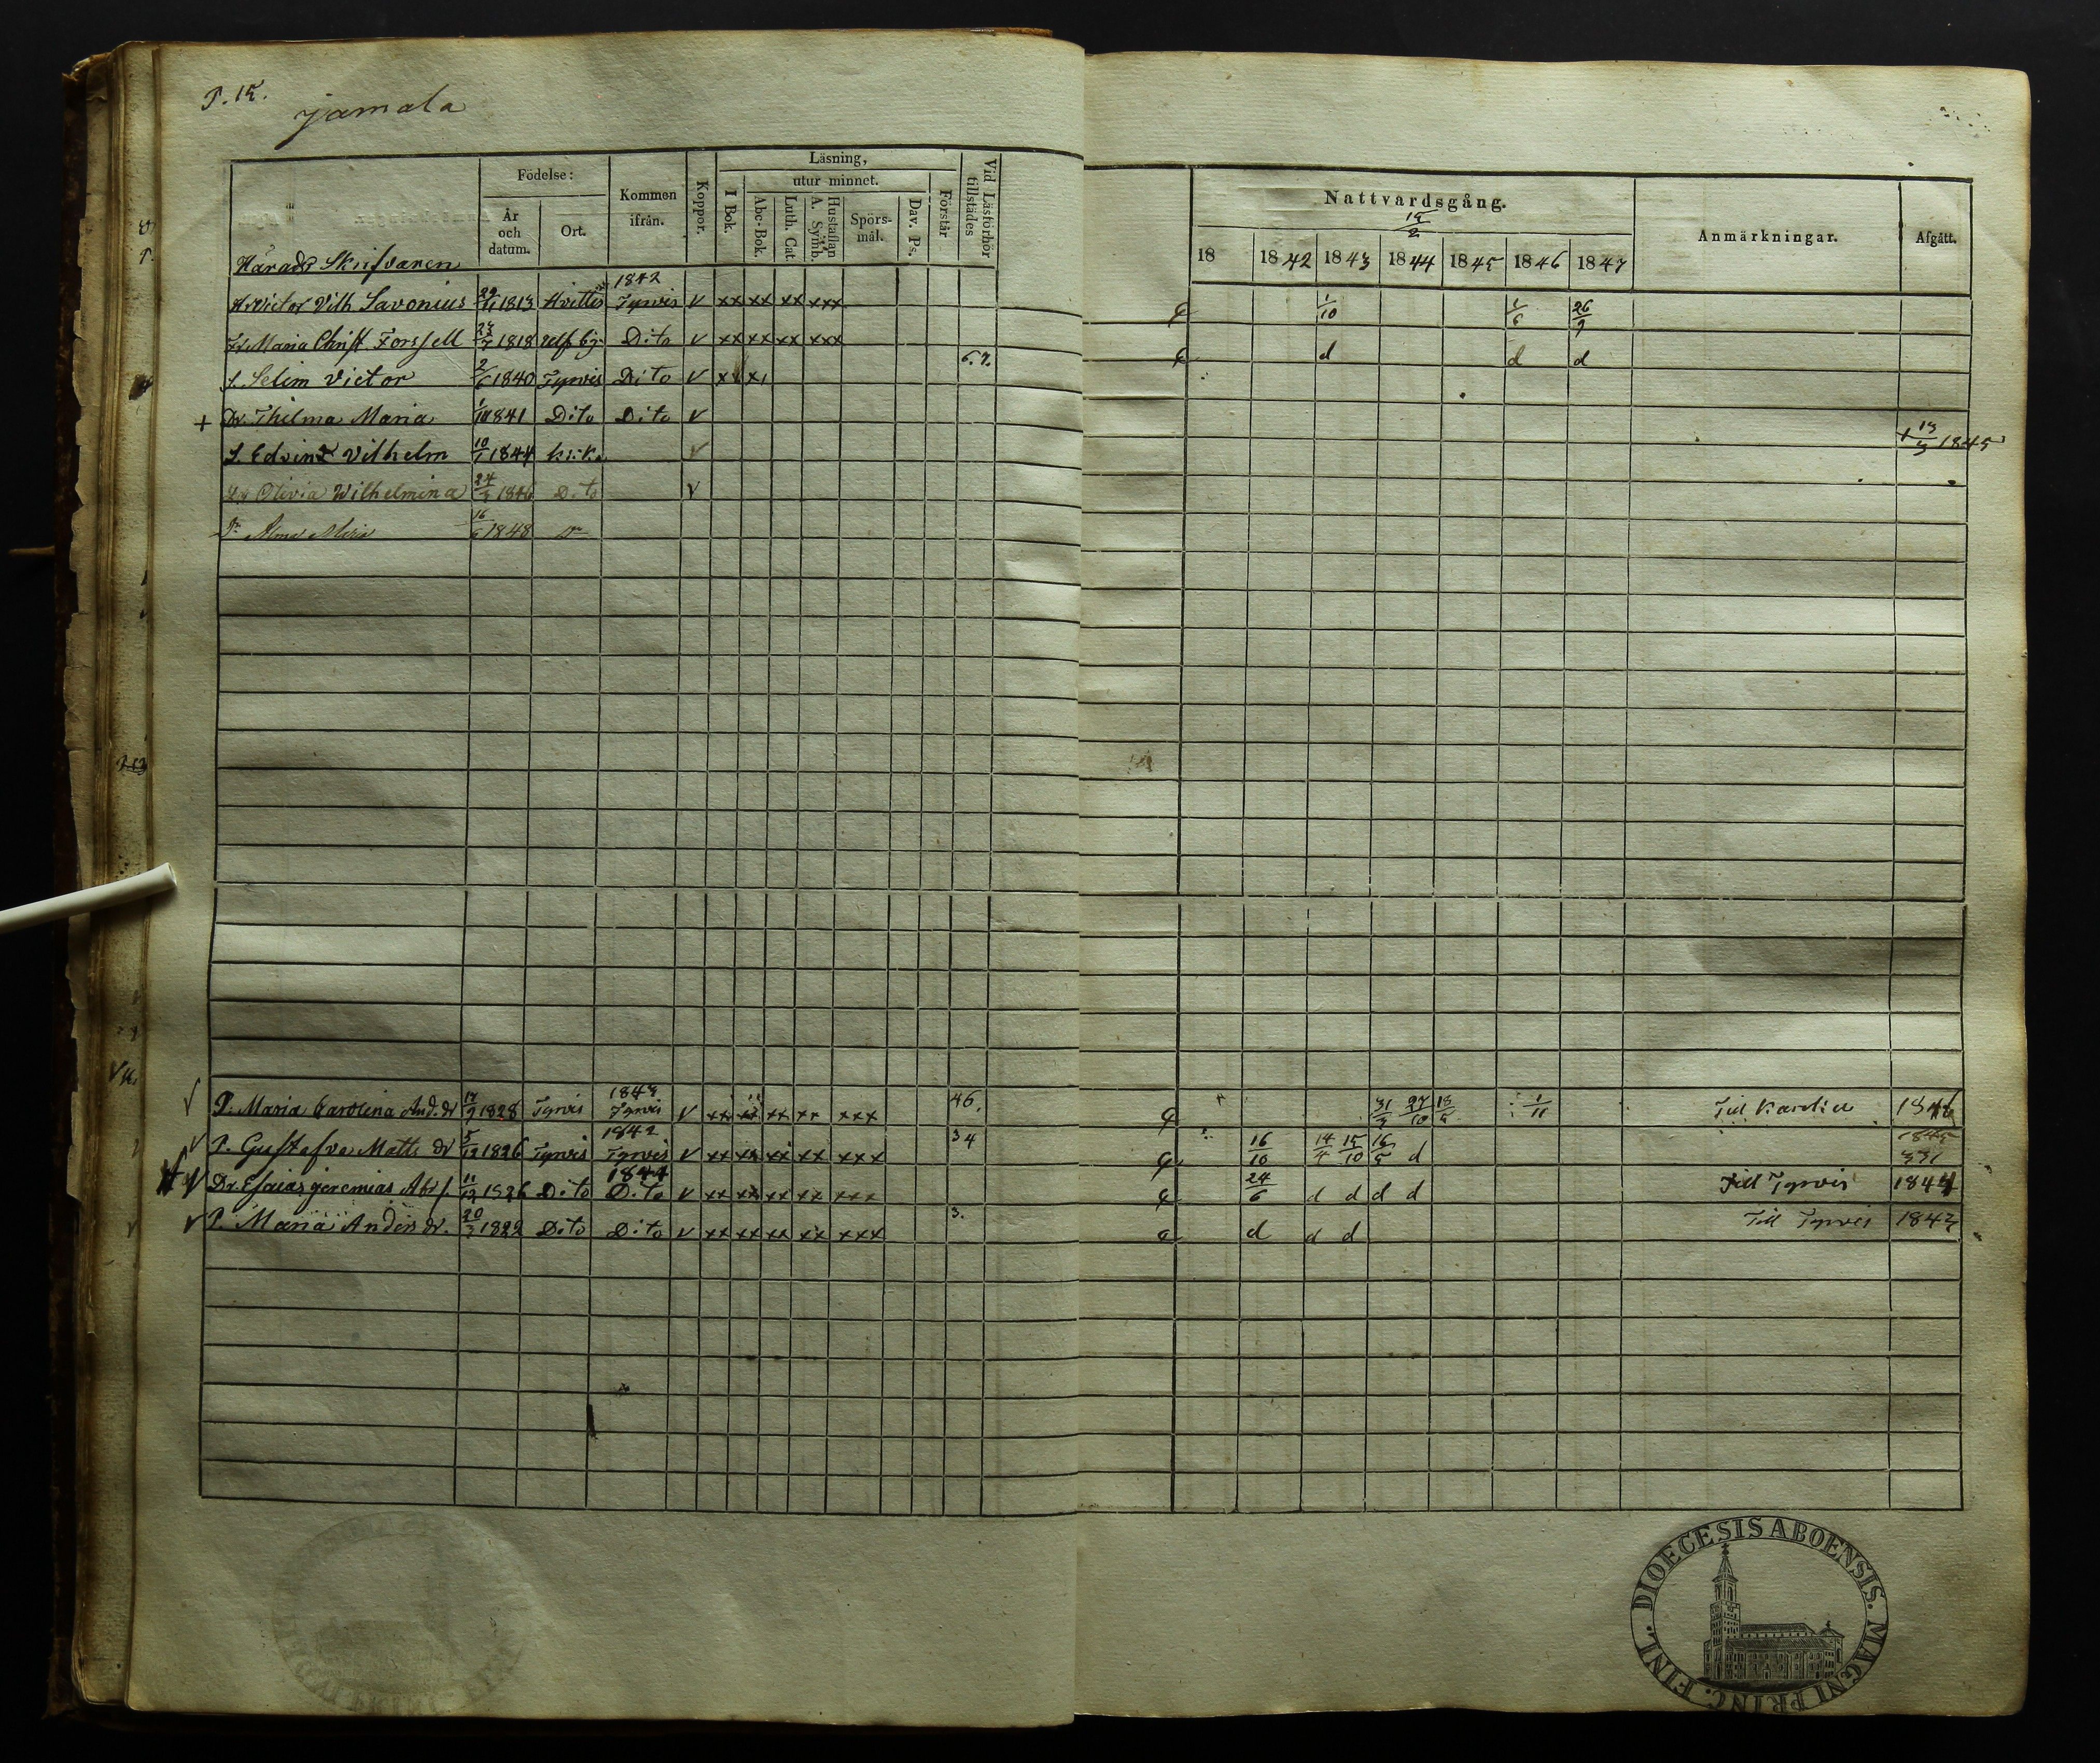 P. 15.
Jamala
Födelse:
Kommen ifrån.
Koppor.
Läsning,
utur minnet.
I Bok.
Abc-Bok.
Luth. Cat.
Hustaflan A. Symb.
Spörs-mål.
Dav. Ps.
Förstår
Vid Läsförhör tillstädes
År och datum.
Ort.
Nattvardsgång.
15/2
18 1842 1843 1844 1845 1846 1847
Anmärkningar.
Afgått.
Härads Skrifvaren
1842
Victor Vilh. Savonius 1813 Hvittis Tyrvis v xx xx xx xxx 1/10 1/6 26/9
Maria Christ. Forssell 1818 Dito v xx xx xx xxx d d d
S. Selim Victor 2/6 1840 Tyrvis Dito v 6.7.
+ Dr. Thilma Maria 1841 Dito Dito v
S. Edvind Vilhelm 10/1 1844 v + 13/3 1845
Olivia Wilhelmina 24/3 1846 Dito v
16/6 1848
1843
P. Maria Carolina And. dr 17/9 1828 Tyrvis Tyrvis v xx xx xx xx xxx 46. 27/10 1/11 Till 1846
1842
P. Gustafva Matts dr 5/12 1826 Tyrvis Tyrvis v xx xx xx xx xxx 34 16/10 14/4 15/10 16/5 d 1845
1841
Dr. Esaias Jeremias Abr. s. 11/12 1826 Dito Dito v xx xx xx xx xxx 24/6 d d d d Till Tyrvis 1844
P. Maria Anders dr. 20/3 1822 Dito Dito v xx xx xx xx xxx 3. d d d Till Tyrvis 1843
DIOECESIS ABOENSIS. MAGNI PRINC. FINL.